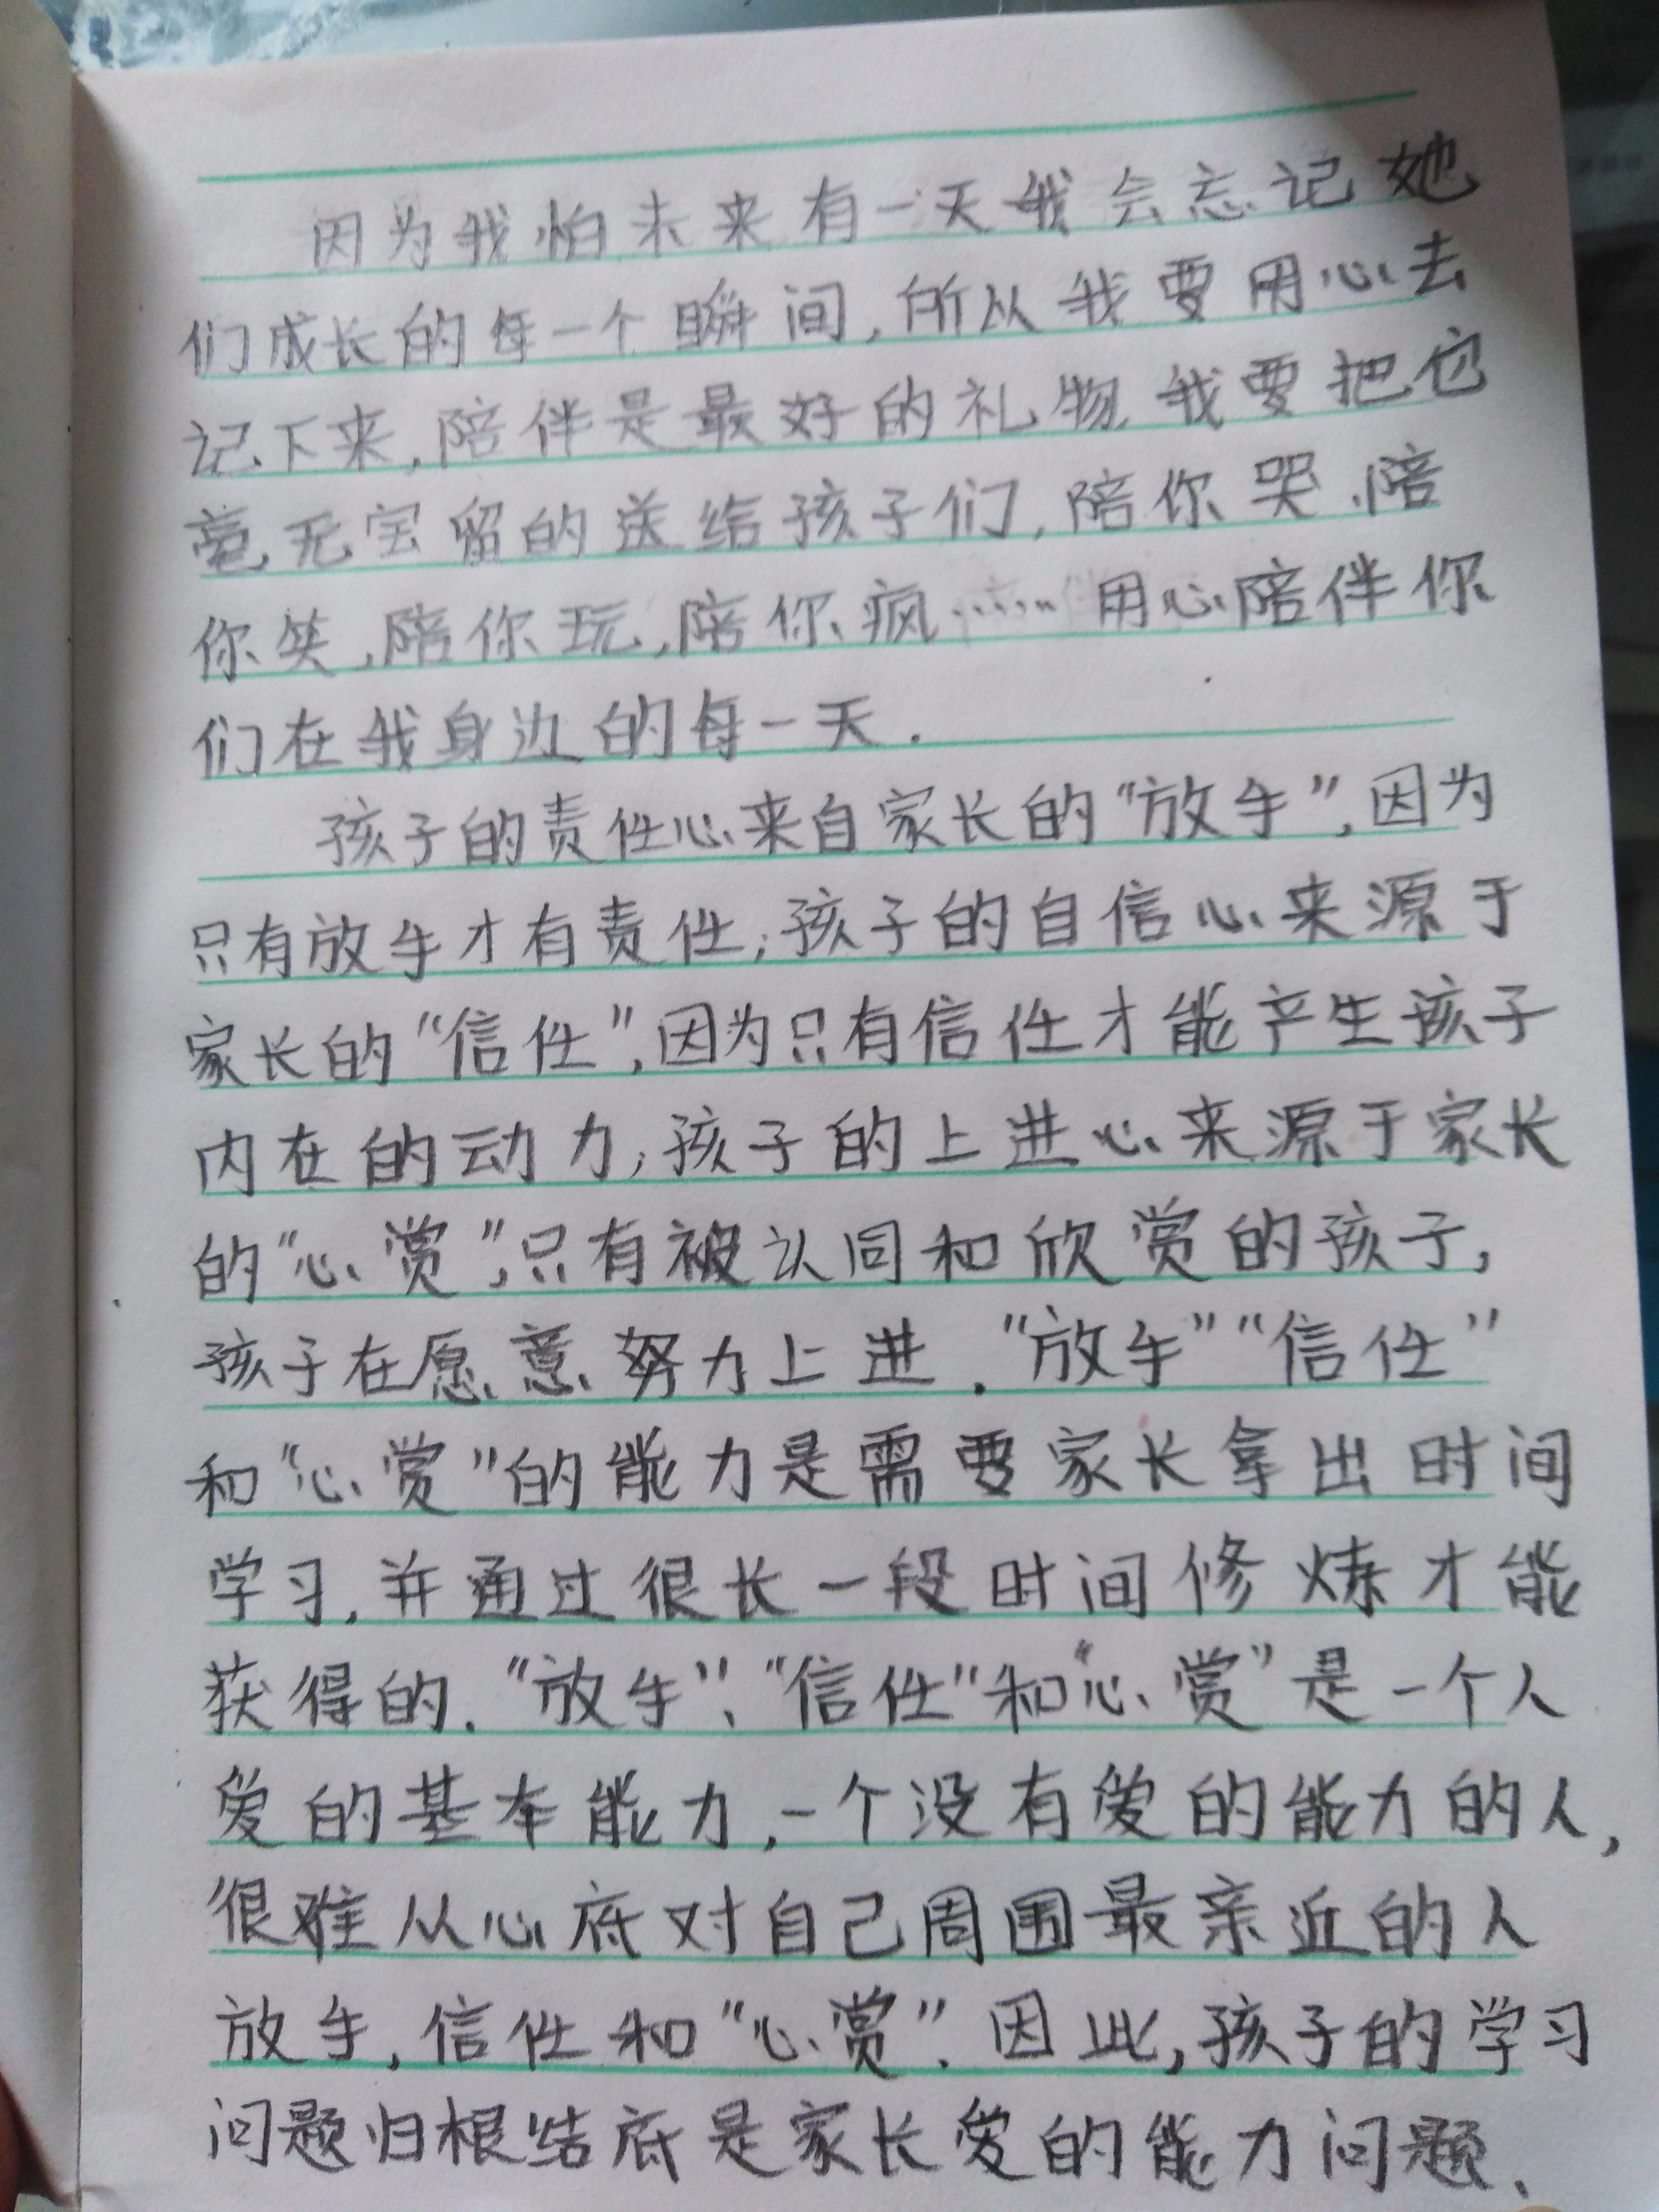 因为我怕未来有一天我会忘记她
们成长的每一个瞬间,所以我要用心去
记下来,陪伴是最好的礼物,我要把它
毫无宝留的送给孩子们,陪你哭,陪
你笑,陪你玩,陪你疯……用心陪伴你
们在我身边的每一天.
孩子的责任心来自家长的“放手”,因为
只有放手才有责任;孩子的自信心来源于
家长的“信任”,因为只有信任才能产生孩子
内在的动力;孩子的上进心来源于家长
的“心赏”,只有被认同和欣赏的孩子,
孩子在愿意努力上进.“放手”“信任”
和“心赏”的能力是需要家长拿出时间
学习,并通过很长一段时间修炼才能
获得的.“放手”、“信任”和“心赏”是一个人
爱的基本能力,一个没有爱的能力的人,
很难从心底对自己周围最亲近的人
放手,信任和“心赏”.因此,孩子的学习
问题归根结底是家长爱的能力问题.